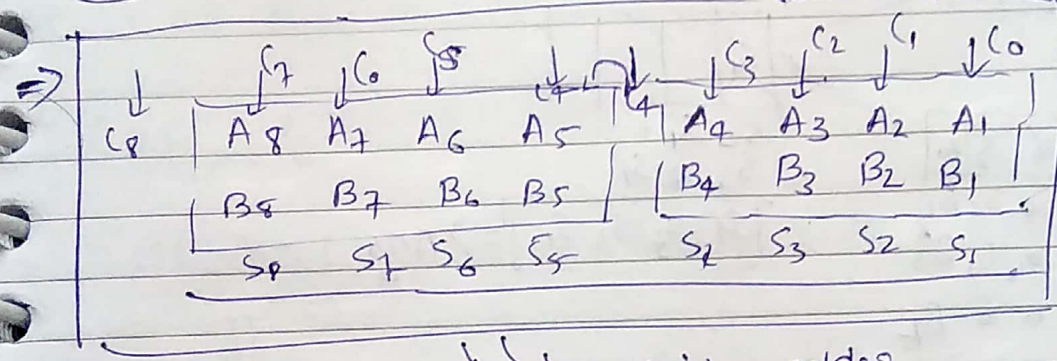 ⇒ C7 C6 C5 C3 C2 C1 C0
C8 C4 C4
A8 A7 A6 A5 A4 A3 A2 A1
B8 B7 B6 B5 B4 B3 B2 B1
S8 S7 S6 S5 S4 S3 S2 S1